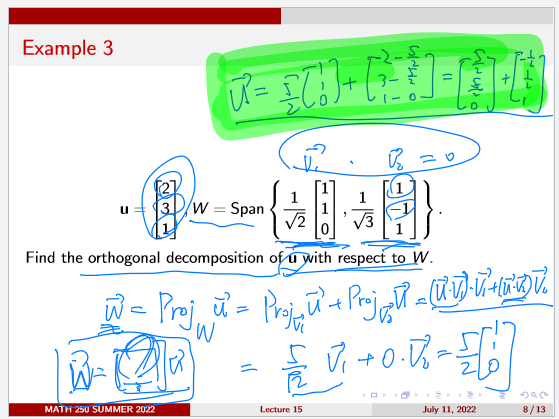 Example 3
\vec{u} = \frac{5}{2} \begin{bmatrix} 1 \\ 1 \\ 0 \end{bmatrix} + \begin{bmatrix} 2 - \frac{5}{2} \\ 3 - \frac{5}{2} \\ 1 - 0 \end{bmatrix} = \begin{bmatrix} \frac{5}{2} \\ \frac{5}{2} \\ 0 \end{bmatrix} + \begin{bmatrix} -\frac{1}{2} \\ \frac{1}{2} \\ 1 \end{bmatrix}
\vec{v_1} \cdot \vec{v_2} = 0
u = \begin{bmatrix} 2 \\ 3 \\ 1 \end{bmatrix}, W = Span \left\{ \frac{1}{\sqrt{2}} \begin{bmatrix} 1 \\ 1 \\ 0 \end{bmatrix}, \frac{1}{\sqrt{3}} \begin{bmatrix} 1 \\ -1 \\ 1 \end{bmatrix} \right\}.
Find the orthogonal decomposition of u with respect to W.
\vec{w} = Proj_W \vec{u} = Proj_{\vec{v_1}} \vec{u} + Proj_{\vec{v_2}} \vec{u} = (\vec{u} \cdot \vec{v_1}) \cdot \vec{v_1} + (\vec{u} \cdot \vec{v_2}) \vec{v_2}
= \frac{5}{\sqrt{2}} \vec{v_1} + 0 \cdot \vec{v_2} = \frac{5}{2} \begin{bmatrix} 1 \\ 1 \\ 0 \end{bmatrix}
MATH 250 SUMMER 2022 Lecture 15 July 11, 2022 8 / 13